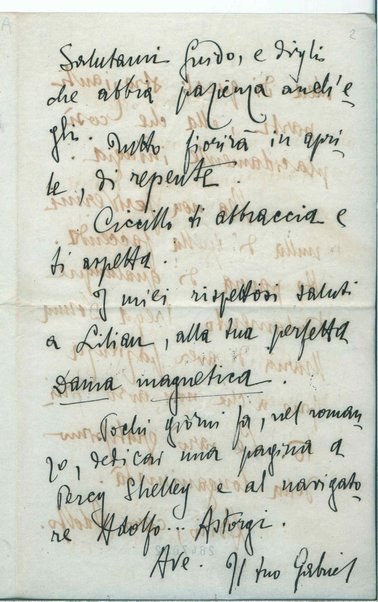 2
Salutami Guido, e digli
che abbia pazienza anch'e-
gli. Tutto fiorirà in apri-
le, di repente.
Ciccillo ti abbraccia e
ti aspetta.
I miei rispettosi saluti
a Lilian, alla tua perfetta
Dama magnetica.
Pochi giorni fa, nel roman-
zo, dedicai una pagina a
Percy Shelley e al navigato-
re Adolfo... Astorgi.
Ave. Il tuo Gabriel